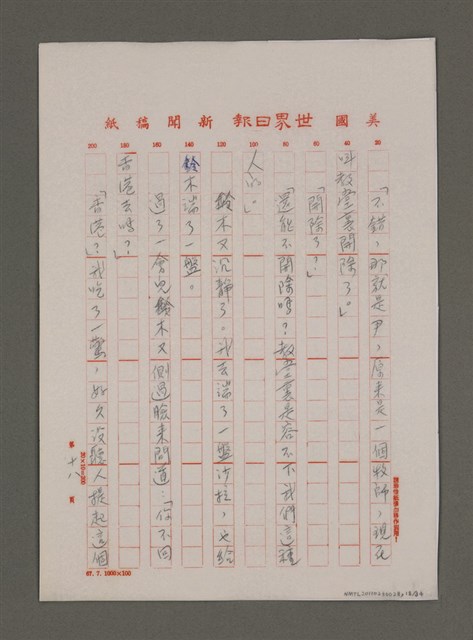 美國世界日報新聞稿紙
20
40
60
80
100
120
140
160
180
200
「不錯，那就是尹，原来是一個牧師，現在
叫教堂裏開除了。」
「開除了？」
「還能不開除嗎？教堂裏是容不下我們這種
人的。」
鈴木又沉靜了。我去端了一盤沙拉，也給
鈴木端了一盤。
過了一會兒鈴木又側過臉来問道：「你不回
香港去嗎？」
「香港？」我吃了一驚，好久沒聽人提起這個
第十八頁
20×10=200
67. 7. 1000×100